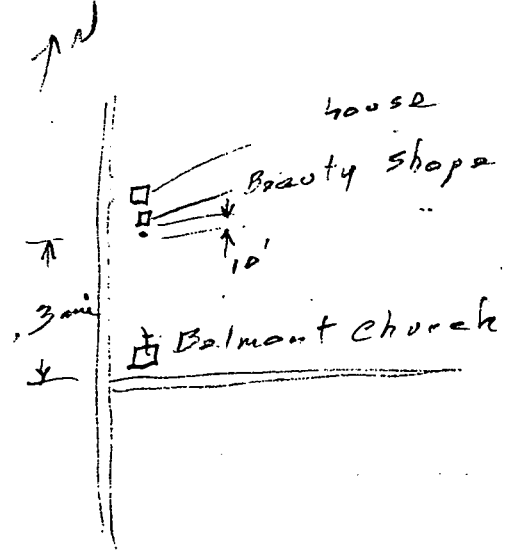 N
house
Beauty shope
10'
.3 mi
Belmont Church